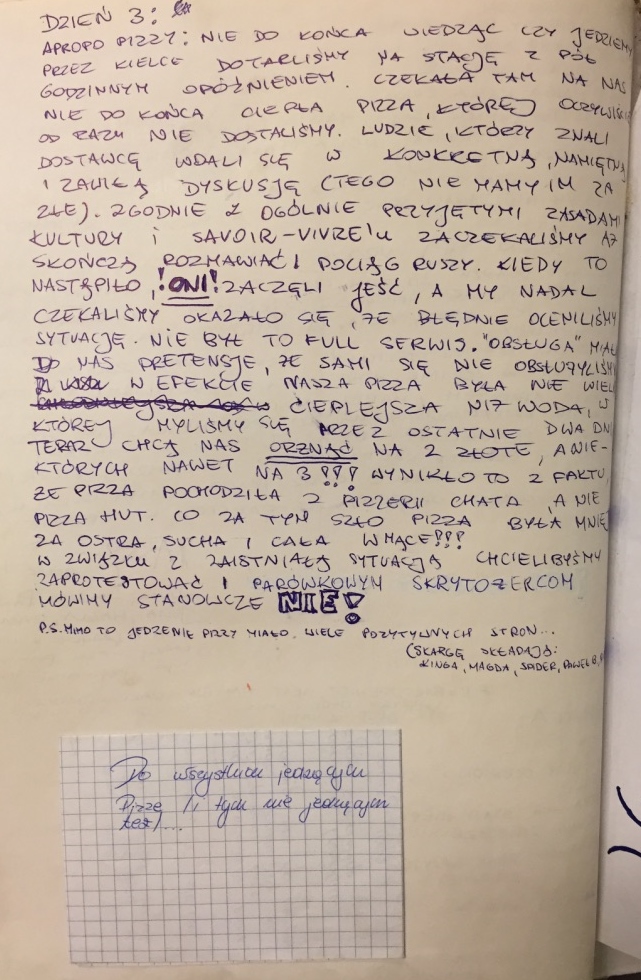 DZIEŃ 3:
APROPO PIZZY: NIE DO KOŃCA WIEDZĄC CZY JEDZIEMY
PRZEZ KIELCE DOTARLIŚMY NA STACJĘ Z PÓŁ
GODZINNYM OPÓŹNIENIEM. CZEKAŁA TAM NA NAS
NIE DO KOŃCA CIEPŁA PIZZA, KTÓREJ OCZYWIŚCIE
OD RAZU NIE DOSTALIŚMY. LUDZIE, KTÓRZY ZNALI
DOSTAWCĘ WDALI SIĘ W KONKRETNĄ, NAMIĘTNĄ
I ZAWIŁĄ DYSKUSJĘ (TEGO NIE MAMY IM ZA
ZŁE). ZGODNIE Z OGÓLNIE PRZYJĘTYMI ZASADAMI
KULTURY I SAVOIR-VIVRE'U ZACZEKALIŚMY AŻ
SKOŃCZĄ ROZMAWIAĆ I POCIĄG RUSZY. KIEDY TO
NASTĄPIŁO, !ONI! ZACZĘLI JEŚĆ, A MY NADAL
CZEKALIŚMY OKAZAŁO SIĘ, ŻE BŁĘDNIE OCENILIŚMY
SYTUACJĘ. NIE BYŁ TO FULL SERWIS. "OBSŁUGA" MIAŁA
DO NAS PRETENSJE, ŻE SAMI SIĘ NIE OBSŁUŻYLIŚMY
W EFEKCIE NASZA PIZZA BYŁA NIE WIELE
CIEPLEJSZA NIŻ WODA, W
KTÓREJ MYLIŚMY SIĘ PRZEZ OSTATNIE DWA DNI
TERAZ CHCĄ NAS ORZNĄĆ NA 2 ZŁOTE, A NIE-
KTÓRYCH NAWET NA 3 !!! WYNIKŁO TO Z FAKTU,
ŻE PIZZA POCHODZIŁA Z PIZZERII CHATA, A NIE
PIZZA HUT. CO ZA TYM SZŁO PIZZA BYŁA MNIEJ
ZA OSTRA, SUCHA I CAŁA W MĄCE!!!
W ZWIĄZKU Z ZAISTNIAŁĄ SYTUACJĄ CHCIELIBYŚMY
ZAPROTESTOWAĆ I PARÓWKOWYM SKRYTOŻERCOM
MÓWIMY STANOWCZE NIE!
P.S. MIMO TO JEDZENIE PIZZY MIAŁO WIELE POZYTYWNYCH STRON...
(SKARGĘ SKŁADAJĄ:
KINGA, MAGDA, SPIDER, PAWEŁ B,
Do wszystkich jedzących
Pizzę (i tych nie jedzących
też)...